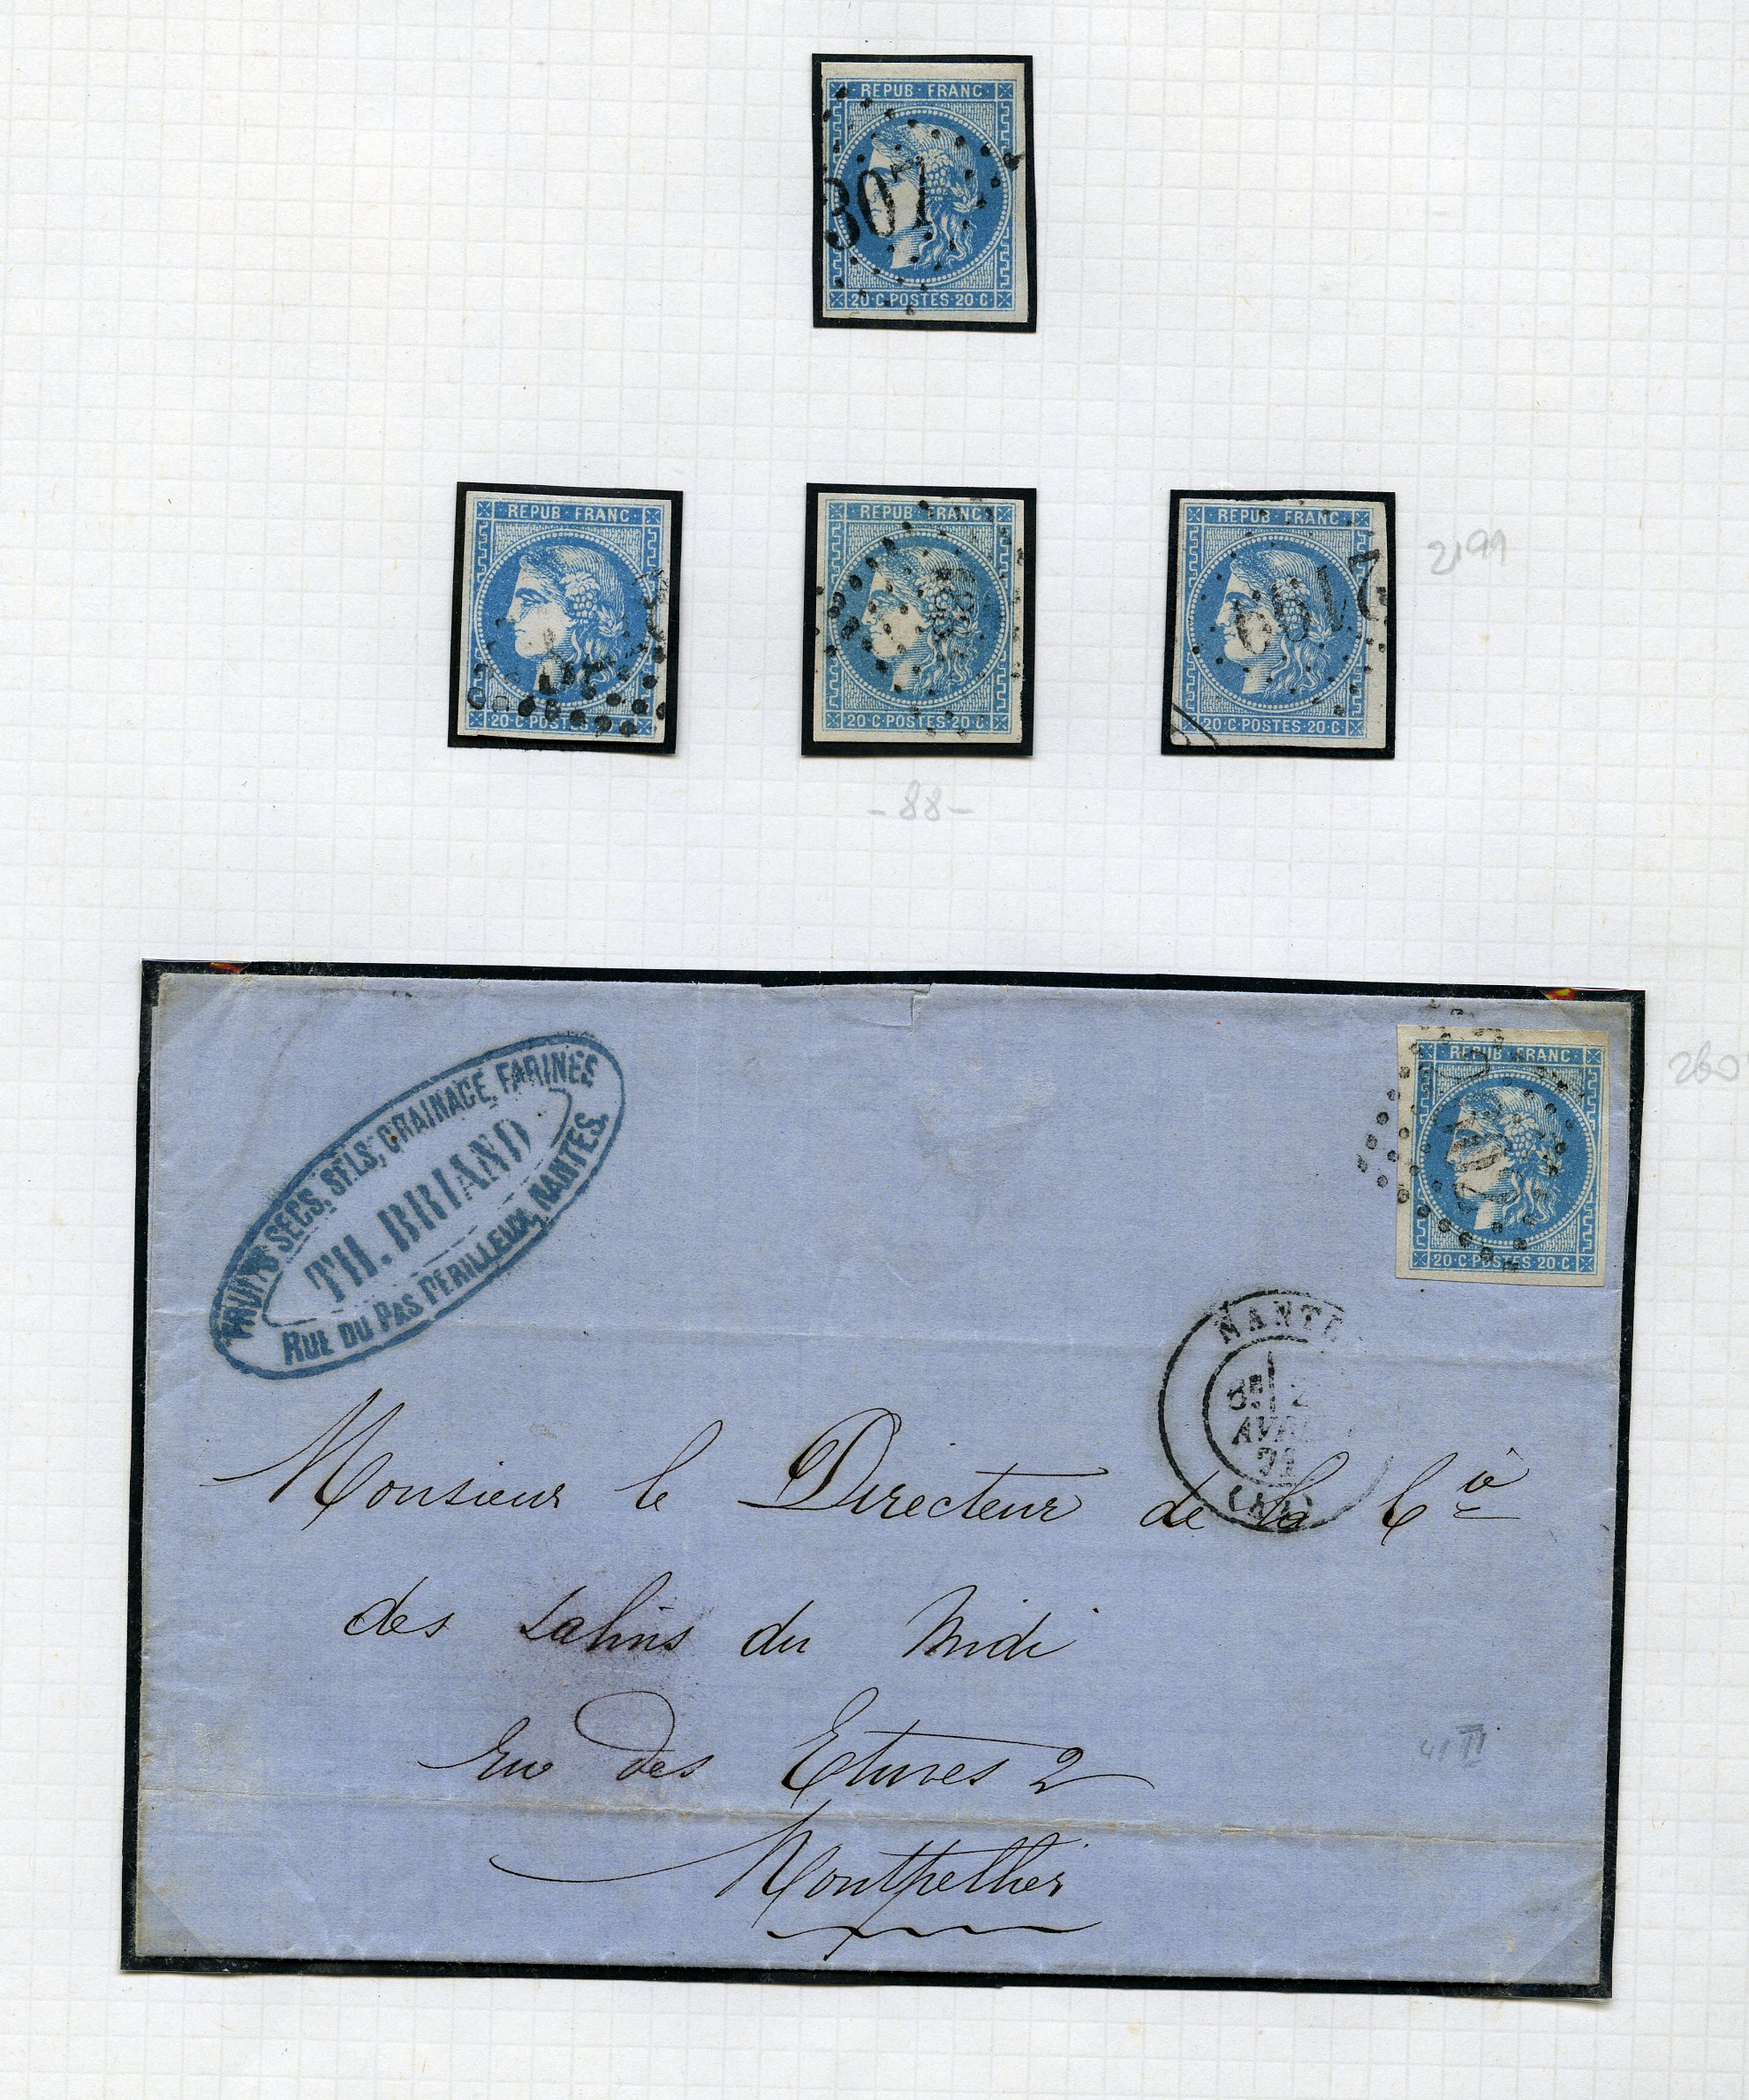 REPUB · FRANC
307
20 · C · POSTES · 20 · C
REPUB · FRANC
20 · C · POSTES
REPUB · FRANC
88
20 · C · POSTES · 20 · C
REPUB · FRANC
2199
20 · C · POSTES · 20 · C
2199
- 88 -
REPUB · FRANC
20 · C · POSTES · 20 · C
260
FRUITS SECS, SELS, GRAINAGE, FARINES
TH. BRIAND
RUE DU PAS PERILLEUX, NANTES.
NANTE
AVRIL
71
(44)
Monsieur le Directeur de la Cie
des Salins du Midi
rue des Etuves 2
Montpellier
41 II